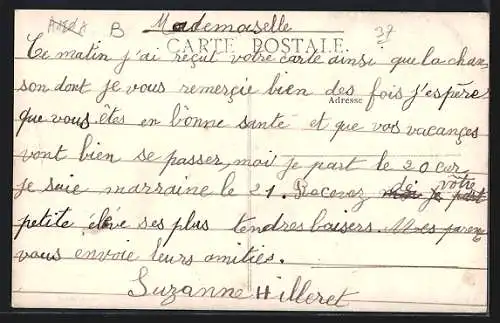 B Mademoiselle 37
CARTE POSTALE.
Ce matin j'ai reçut votre carte ainsi que la chan-
son dont je vous remerçie bien des fois j'espère
Adresse
que vous êtes en bonne santé et que vos vacançes
vont bien se passer, moi je part le 20 car
je suie marraine le 21. Recevez de votre
petite élève ses plus tendres baisers. Mes parents
vous envoie leurs amitiés.
Suzanne Hilleret